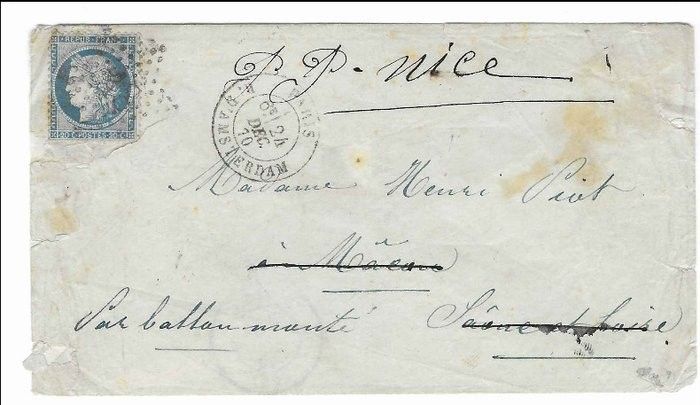 REPUB. FRANC.
20 C. POSTES 20 C.
P.P. - nice
PARIS
8E 24
DEC.
70
R. D'AMSTERDAM
Madame Henri Piot
à Mâcon
Par ballon monté Saône et Loire